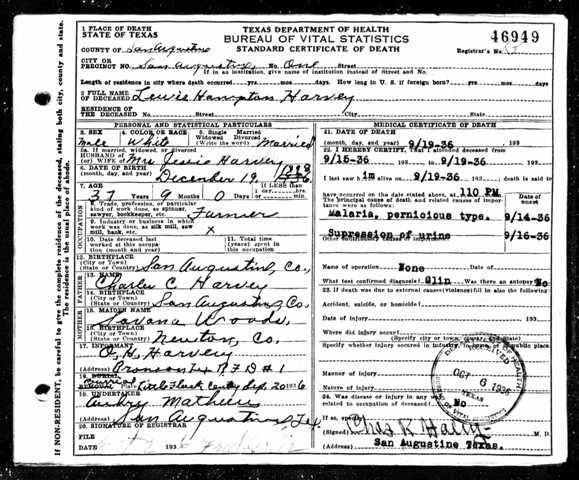 1 PLACE OF DEATH
STATE OF TEXAS
TEXAS DEPARTMENT OF HEALTH
BUREAU OF VITAL STATISTICS
STANDARD CERTIFICATE OF DEATH
46949
COUNTY OF San Augustine
Registrar's No.
CITY OR
PRECINCT NO. San Augustine, No. One Street
If in an institution, give name of institution instead of Street and No.
Length of residence in city where death occurred yrs. mos. days. How long in U. S. if foreign born? yrs. mos. days.
2 FULL NAME
OF DECEASED Lewis Hampton Harvey
RESIDENCE OF
THE DECEASED No. Street City State
PERSONAL AND STATISTICAL PARTICULARS
3. SEX
male
4. COLOR OR RACE
White
5. Single Married
Widowed Divorced
(Write the word)
Married
5a. If married, widowed or divorced
HUSBAND of
(or) WIFE of Mrs Jessie Harvey
6. DATE OF BIRTH
(month, day, and year) December 19,
7. AGE
37 Years 9 Months 0 Days
If LESS than
1 day
hrs. Min.
OCCUPATION
8. Trade, profession, or particular
kind of work done, as spinner,
sawyer, bookkeeper, etc. Farmer
9. Industry or business in which
work was done, as silk mill, saw
mill, bank, etc. x
10. Date deceased last
worked at this occupation
(month and year)
11. Total time
(years) spent in
this occupation
12. BIRTHPLACE
(City or Town)
(State or Country) San Augustine, Co.,
FATHER
13. NAME
Charley C. Harvey
14. BIRTHPLACE
(City or Town)
(State or Country) San Augustine Co.
MOTHER
15. MAIDEN NAME
Savana Woods,
16. BIRTHPLACE
(City or Town)
(State or Country) Newton, Co.
17. INFORMANT
O. H. Harvey
(Address) Bronson Tex R F D # 1
18. BURIAL
Place Date Sep. 20 1936
19. UNDERTAKER
Aubry Mathews
(Address) San Augustine, Tex.
20. SIGNATURE OF REGISTRAR
FILE
193
MEDICAL CERTIFICATE OF DEATH
21. DATE OF DEATH
(month, day, and year) 9/19-36 193
22. I HEREBY CERTIFY, That I attended deceased from
9/15-36 193 , to 9/19-36 193
I last saw h im alive on 9/19-36 193 , death is said to
have occurred on the date stated above, at 110 PM
The principal cause of death and related causes of importance
were as follows:
Date of onset
Malaria, pernicious type. 9/14-36
Supression of urine 9/16-36
Other contributory causes of importance:
Name of operation None Date of
What test confirmed diagnosis? Clin Was there an autopsy? No
23. If death was due to external causes (violence) fill in also the following
Accident, suicide, or homicide?
Date of injury 193
Where did injury occur?
(Specify city or town, county and State)
Specify whether injury occured in industry, in home, or in public place.
Manner of injury
Nature of injury
24. Was disease or injury in any way
related to occupation of deceased? No
If so, specify
(Signed) Chas R Haley M. D.
(Address) San Augustine Texas.
RECEIVED
OCT 6 1936
TEXAS
IF NON-RESIDENT, be careful to give the complete residence of the deceased, stating both city, county and state.
The residence is the usual place of abode.